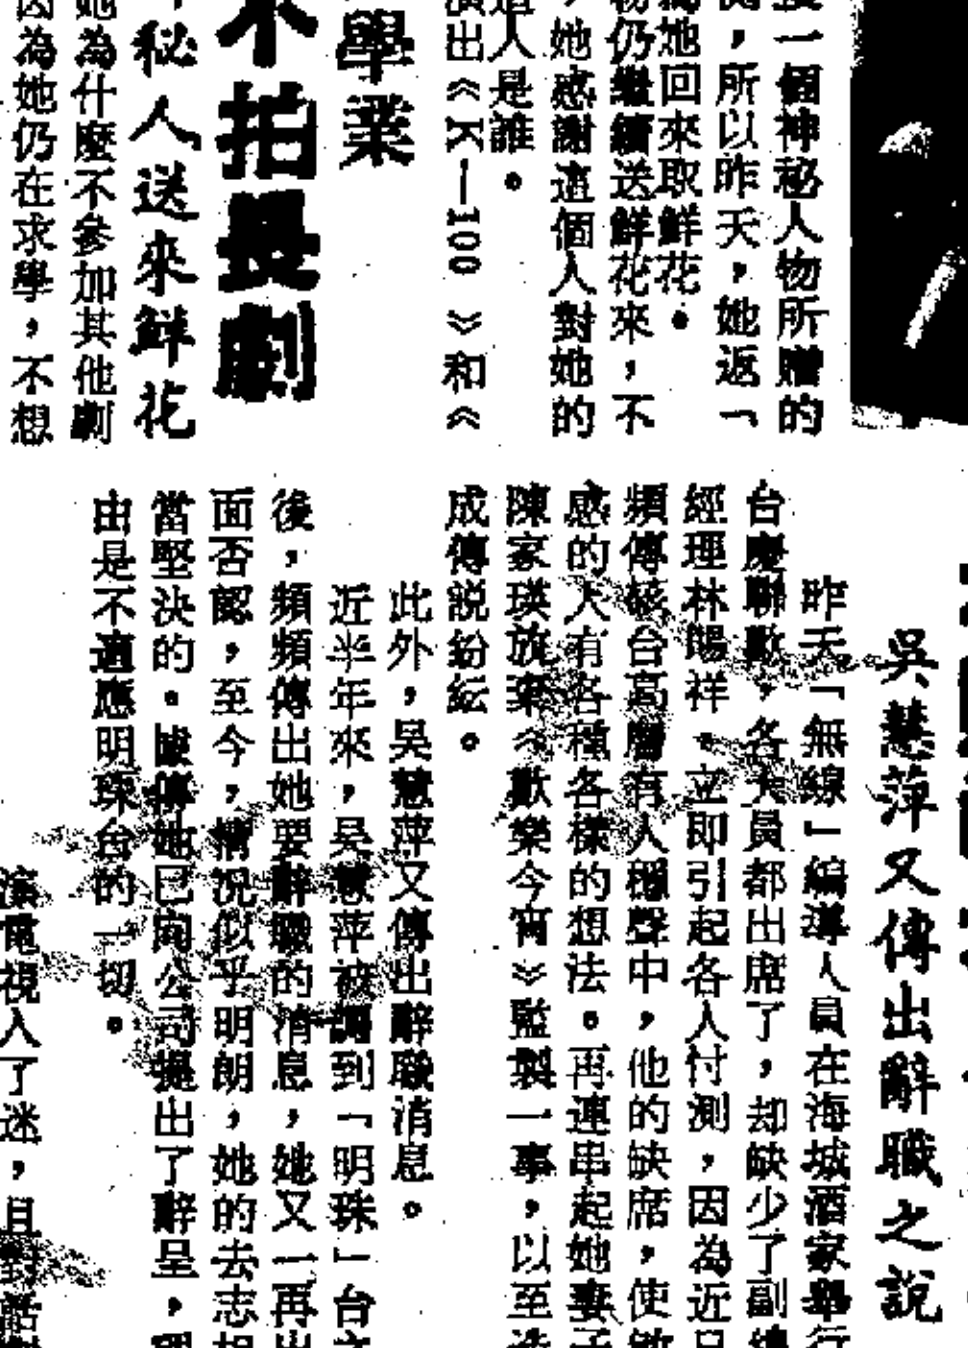 一個神秘人物所贈的
，所以昨天，她返「
她回來取鮮花。
仍繼續送鮮花來，不
，她感謝這個人對她的
人是誰。
演出《K—100》和《
學業
不拍長劇
秘人送來鮮花
她為什麼不參加其他劇
因為她仍在求學，不想
吳慧萍又傳出辭職之說
昨天「無線」編導人員在海城酒家舉行
台慶聯歡，各大員都出席了，却缺少了副總
經理林賜祥。立即引起各人忖測，因為近日
頻傳該台高層有人穩聲中，他的缺席，使敏
感的人有各種各樣的想法。再連串起她妻子
陳家瑛放棄《歡樂今宵》監製一事，以至造
成傳説紛紜。
此外，吳慧萍又傳出辭職消息。
近半年來，吳慧萍被調到「明珠」台之
後，頻頻傳出她要辭職的消息，她又一再出
面否認，至今，情況似乎明朗，她的去志相
當堅決的。據傳她已向公司提出了辭呈，理
由是不適應明珠台的一切。
電視入了迷，且對話